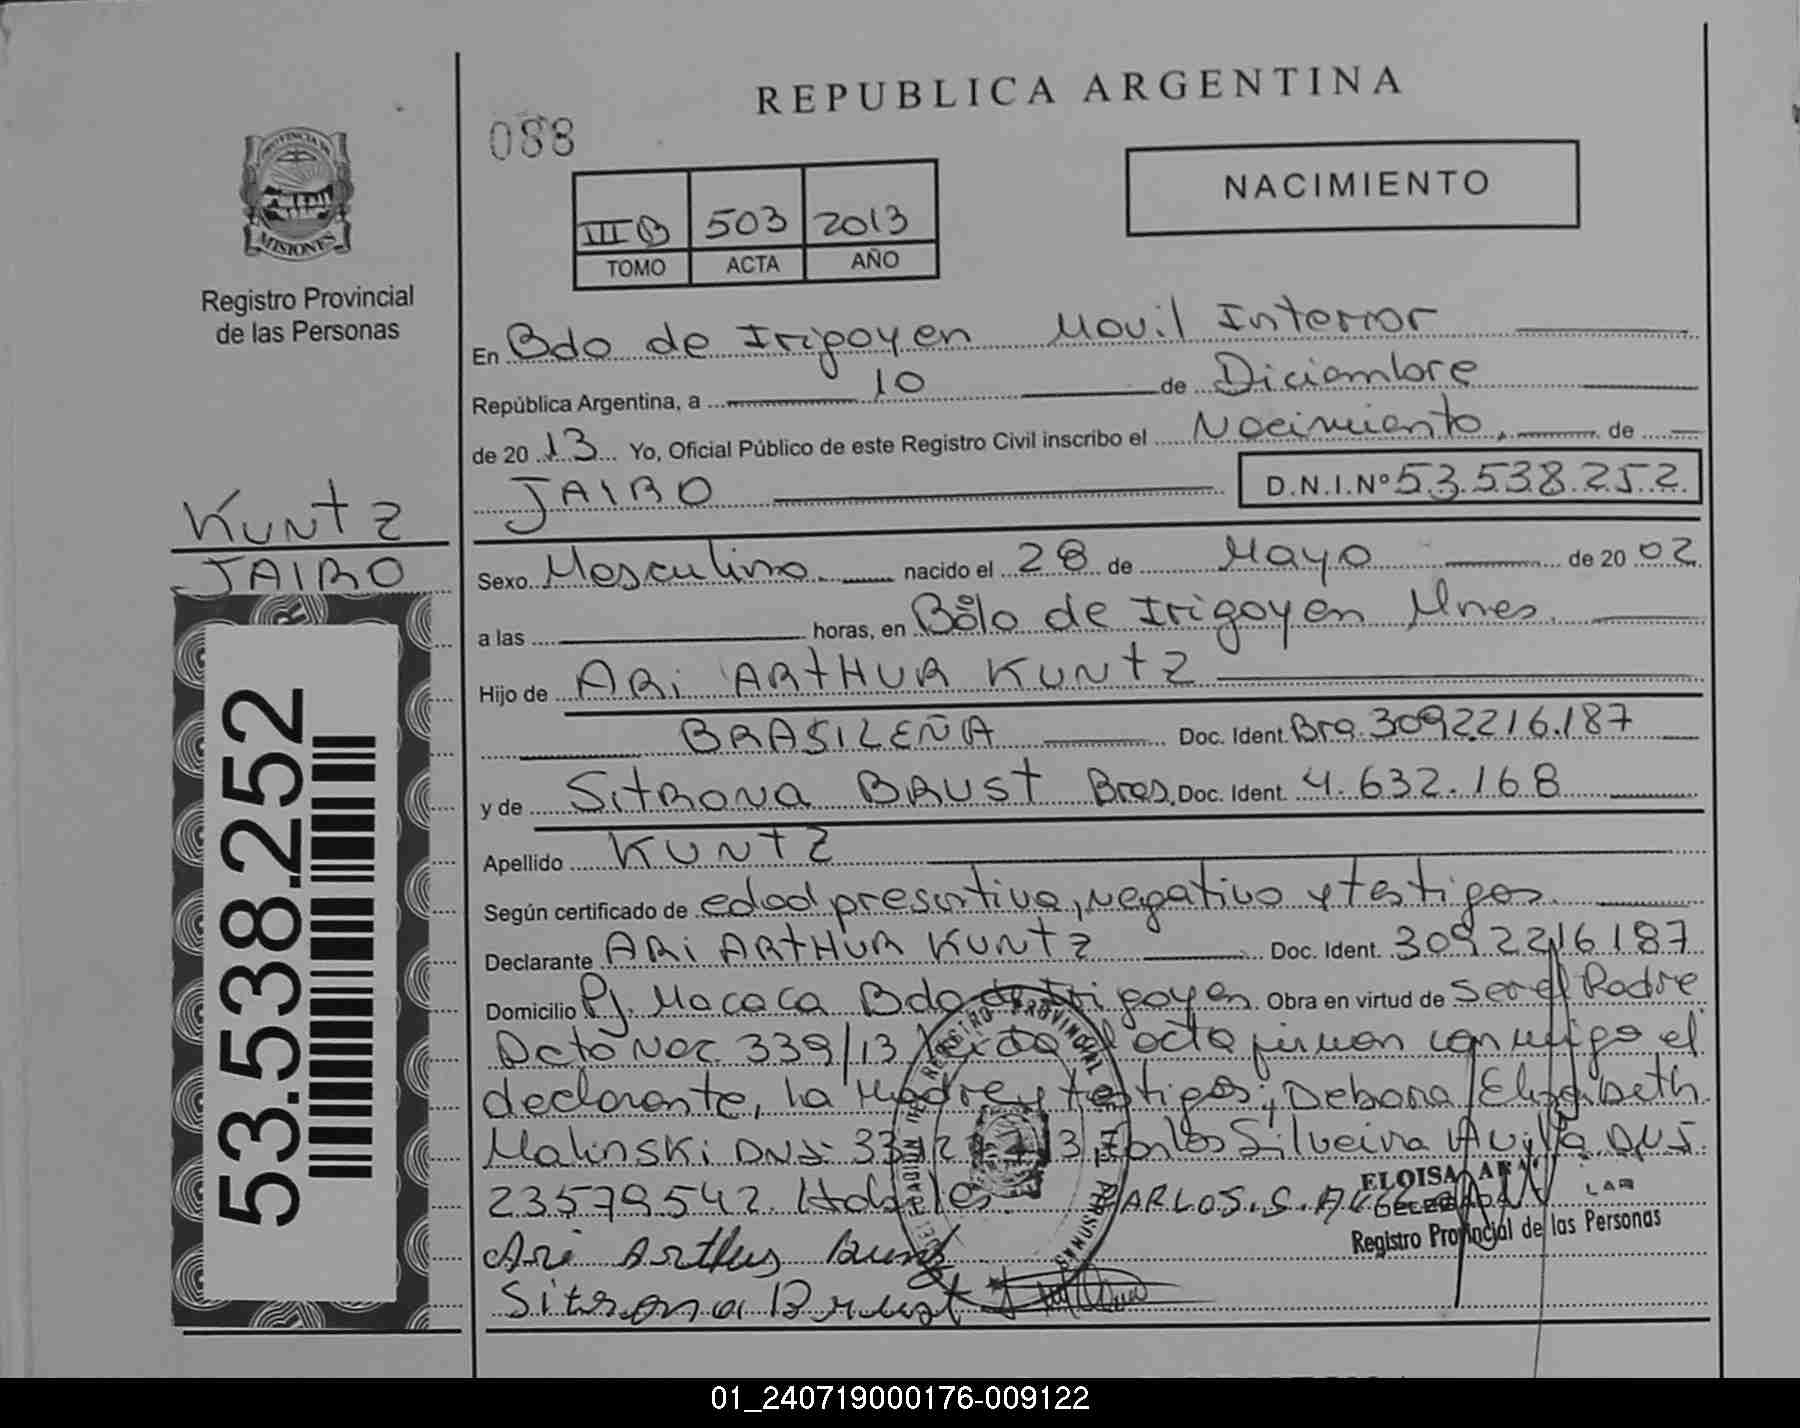 REPUBLICA ARGENTINA
088
NACIMIENTO
III B 503 2013
TOMO ACTA AÑO
PROVINCIA DE
MISIONES
Registro Provincial
de las Personas
En Bdo de Irigoyen Movil Interior
República Argentina, a 10 de Diciembre
de 2013 Yo, Oficial Público de este Registro Civil inscribo el Nacimiento, de
JAIRO D.N.I.Nº 53.538.252
KUNTZ
JAIRO
53.538.252
Sexo Masculino nacido el 28 de Mayo de 2002
a las horas, en Bdo de Irigoyen Mnes.
Hijo de ARi ARTHUR KUNTZ
BRASILEÑA Doc. Ident. Bra. 3092216.187
y de SitRONA BRUST Bras. Doc. Ident. 4.632.168
Apellido KUNTZ
Según certificado de edad presuntiva, negativo y testigos.
Declarante ARi ARTHUR KUNTZ Doc. Ident. 3092216187
Domicilio Pj. Macaca Bdo de Irigoyen. Obra en virtud de ser el Padre
Acto Nac. 339/13 Leida el acta firman conmigo el
declarante, la Madre y testigos; Debora Elizabeth
Malinski DNI: Carlos Silveira Avila DNI.
23579542. CARLOS.S.
ELOISA
Registro Provincial de las Personas
REGISTRO PROVINCIAL PERSONAS
Ari Arthur Kuntz
Sitrona Brust
01_240719000176-009122